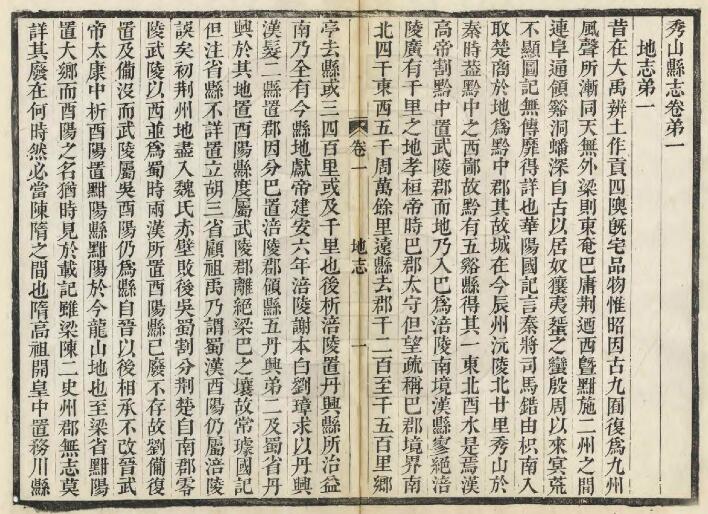 秀山縣志卷弟一
地志弟一
昔在大禹辨土作貢四隩旣宅品物惟昭因古九囿復爲九州
風聲所漸同天無外梁則東奄巴庸荆迺西曁黚施二州之間
連阜通領谿洞蟠深自古以居奴獽夷蜑之蠻殷周以來冥荒
不顯圖記無傳靡得詳也華陽國記言秦將司馬錯由枳南入
取楚商於地爲黔中郡其故城在今辰州沅陵北廿里秀山於
秦時葢黔中之西鄙故黔有五谿縣得其一東北酉水是焉漢
高帝割黔中置武陵郡而地乃入巴爲涪陵南境漢縣寥絕涪
陵廣有千里之地孝桓帝時巴郡太守但望疏稱巴郡境界南
北四千東西五千周萬餘里遠縣去郡千二百至千五百里鄉
卷一 地志 一
亭去縣或三四百里或及千里也後析涪陵置丹興縣所治益
南乃全有今縣地獻帝建安六年涪陵謝本白劉璋求以丹興
漢髮二縣置郡因分巴置涪陵郡領縣五丹興弟二及蜀省丹
興於其地置酉陽縣度屬武陵郡離絕梁巴之壤故常璩國記
但注省縣不詳置立胡三省顧祖禹乃謂蜀漢酉陽仍屬涪陵
誤矣初荆州地盡入魏氏赤壁敗後吳蜀割分荆楚自南郡零
陵武陵以西並爲蜀時兩漢所置酉陽縣已廢不存故劉備復
置及備沒而武陵屬吳酉陽仍爲縣自晉以後相承不改晉武
帝太康中析酉陽置黚陽縣黚陽於今龍山地也至梁省黚陽
置大鄉而酉陽之名猶時見於載記雖梁陳二史州郡無志莫
詳其廢在何時然必當陳隋之間也隋高祖開皇中置務川縣